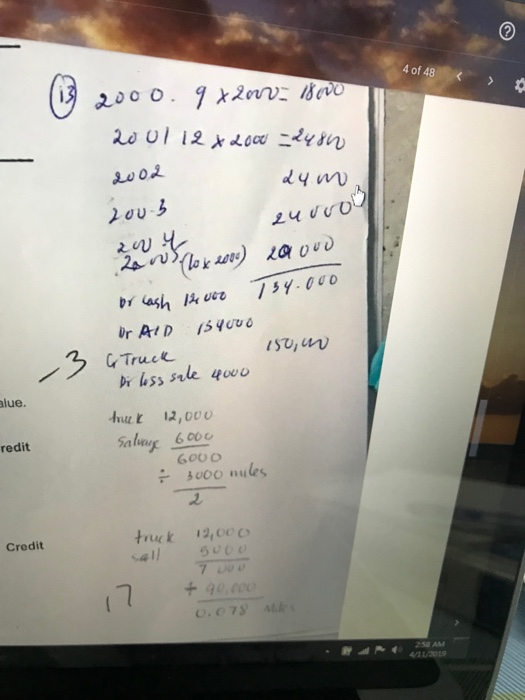 4 of 48
13 2000. 9 x 2000 = 18000
2001 12 x 2000 = 24000
2002 24000
2003 24000
2004
2005 (10 x 2000) 20 000
134.000
Dr cash 12 000
Dr A/D 134000
-3 Cr Truck 150,000
Dr loss sale 4000
alue.
truck 12,000
redit
Salvage 6000
6000
÷ 3000 miles
2
Credit
truck 12,000
sell 5000
7000
17 ÷ 90,000
0.078 Miles
2:58 AM
4/11/2018